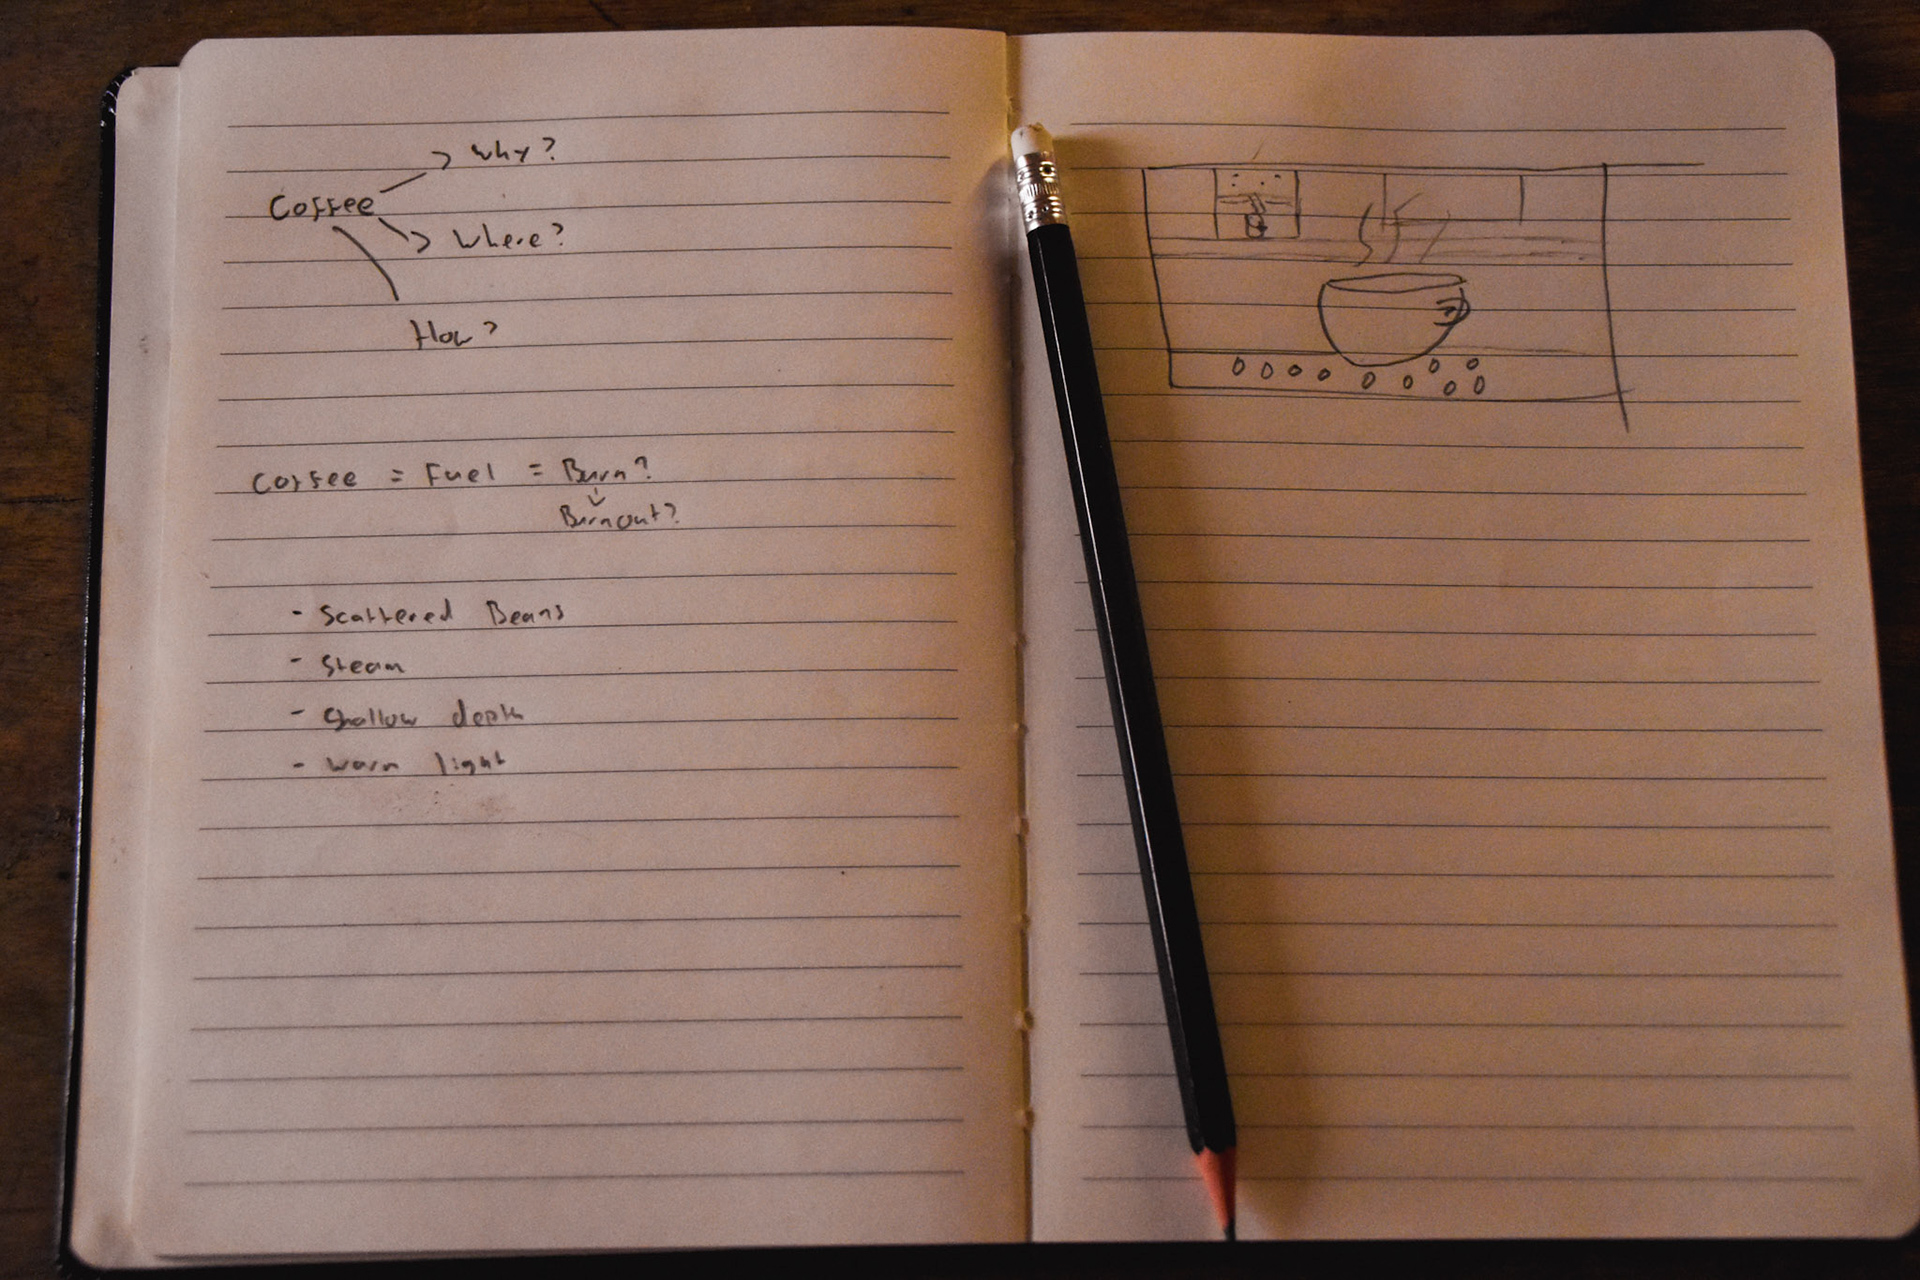 Why?
Coffee
Where?
How?
Coffee = Fuel = Burn?
Burnout?
- Scattered Beans
- Steam
- Shallow depth
- Warm light